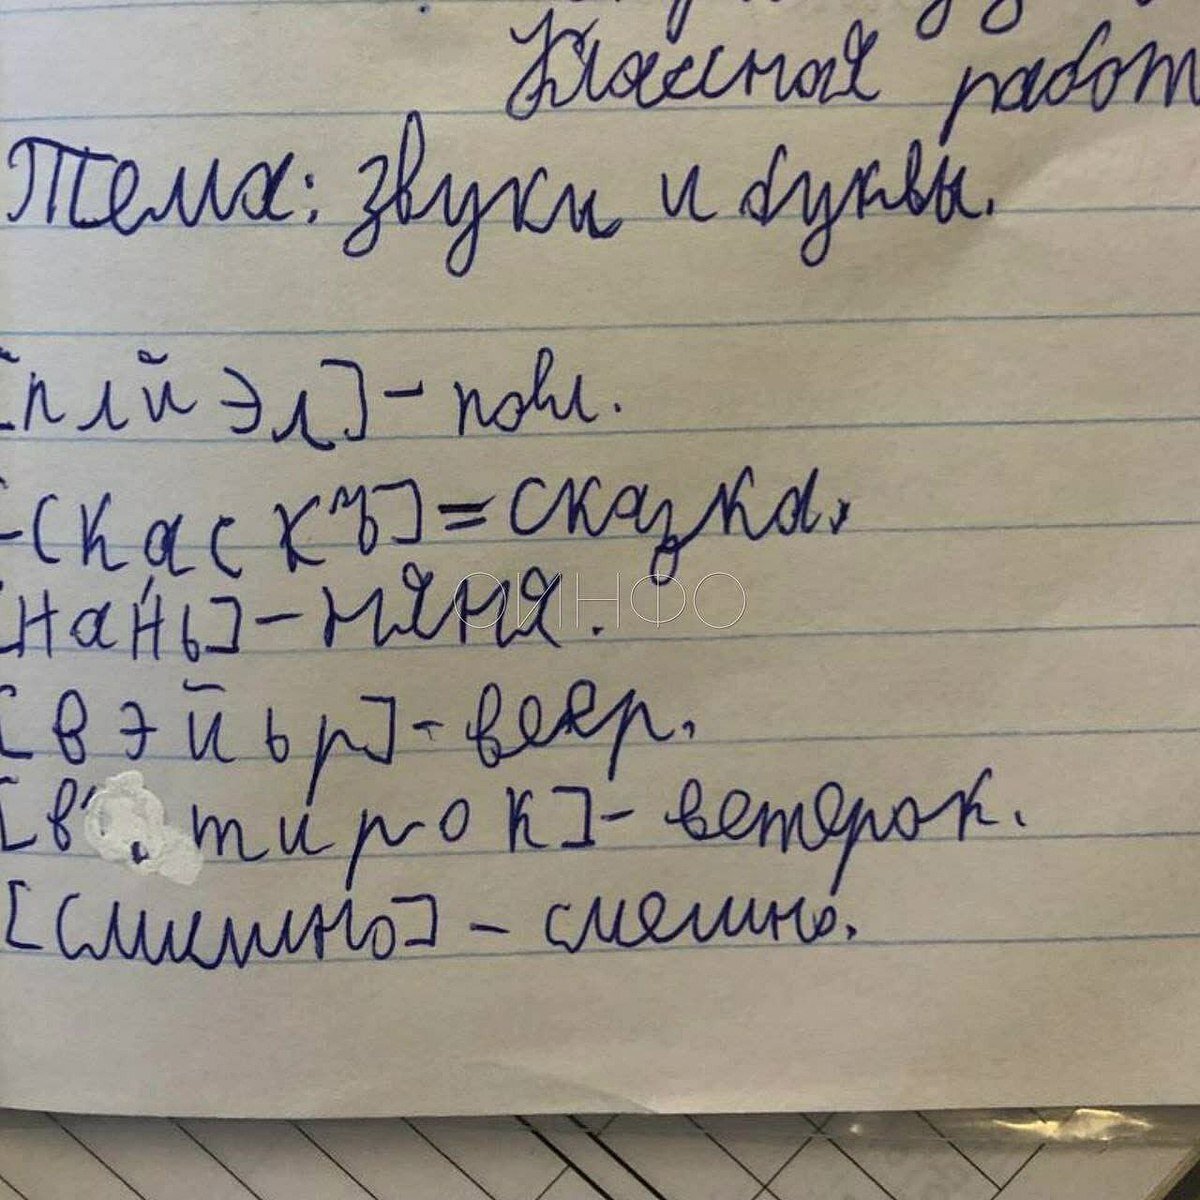 Классная работ
Тема: звуки и буквы.
[п л й э л] - поел.
[с к а с к ъ] = сказка.
[н а н' ь] - няня.
ОИНФО
[в э й ь р] - веер.
[в' т и р о к] - ветерок.
[смишно] - смешно.